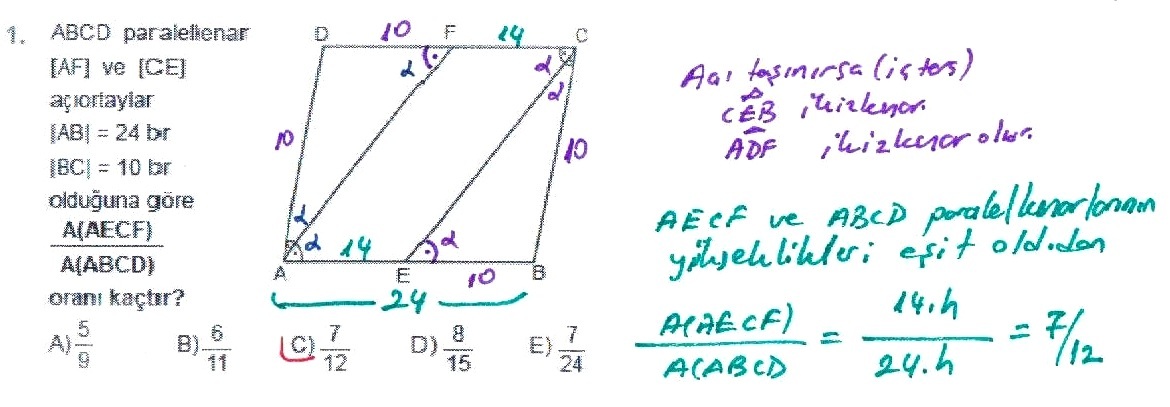 1. ABCD paralelkenar
[AF] ve [CE]
açıortaylar
|AB| = 24 br
|BC| = 10 br
olduğuna göre
A(AECF)
A(ABCD)
oranı kaçtır?
A) 5/9 B) 6/11 C) 7/12 D) 8/15 E) 7/24
D 10 F 14 C
α α
α
10 10
α
α 14 α
A E 10 B
24
Açı taşınırsa (iç ters)
CEB ikizkenar
ADF ikizkenar olur.
AECF ve ABCD paralelkenarlarının
yükseklikleri eşit old.dan
A(AECF) / A(ABCD = 14.h / 24.h = 7/12